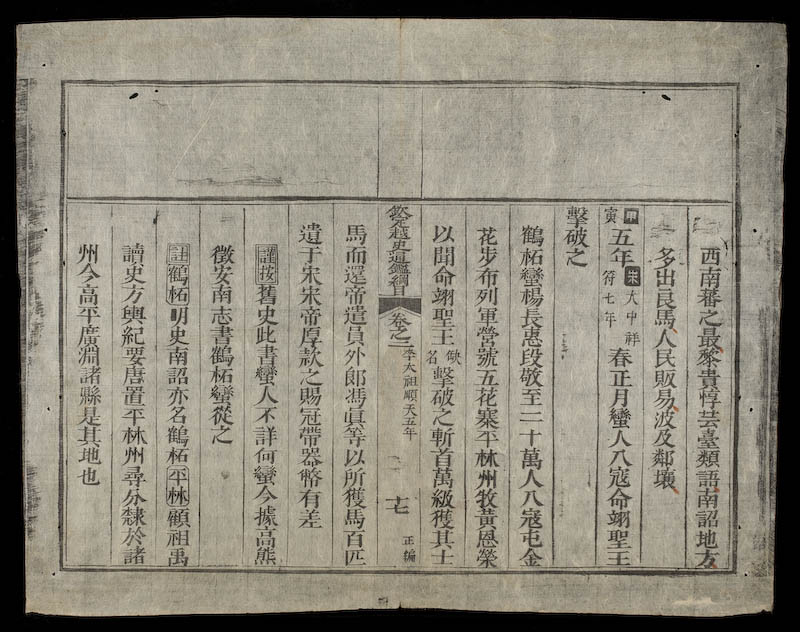 西南蕃之最黎貴惇芸臺類語南詔地方
多出良馬人民販易波及鄰壤
甲寅五年宋大中祥符七年春正月蠻人入寇命翊聖王
擊破之
鶴柘蠻楊長惠段敬至二十萬人入寇屯金
花步布列軍營號五花寨平林州牧黃恩榮
以聞命翊聖王缺名擊破之斬首萬級獲其士
欽定越史通鑑綱目 卷之二 李太祖順天五年 十七 正編
馬而還帝遣員外郎馮眞等以所獲馬百匹
遺于宋宋帝厚款之賜冠帶器幣有差
謹按舊史此書蠻人不詳何蠻今據高熊
徵安南志書鶴柘蠻從之
註鶴柘明史南詔亦名鶴柘平林顧祖禹
讀史方輿紀要唐置平林州尋分隸於諸
州今高平廣淵諸縣是其地也